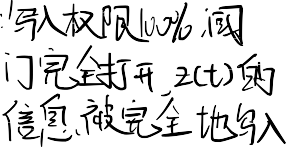 :写入权限100%,阀
门完全打开,z(t)的
信息,被完全地写入